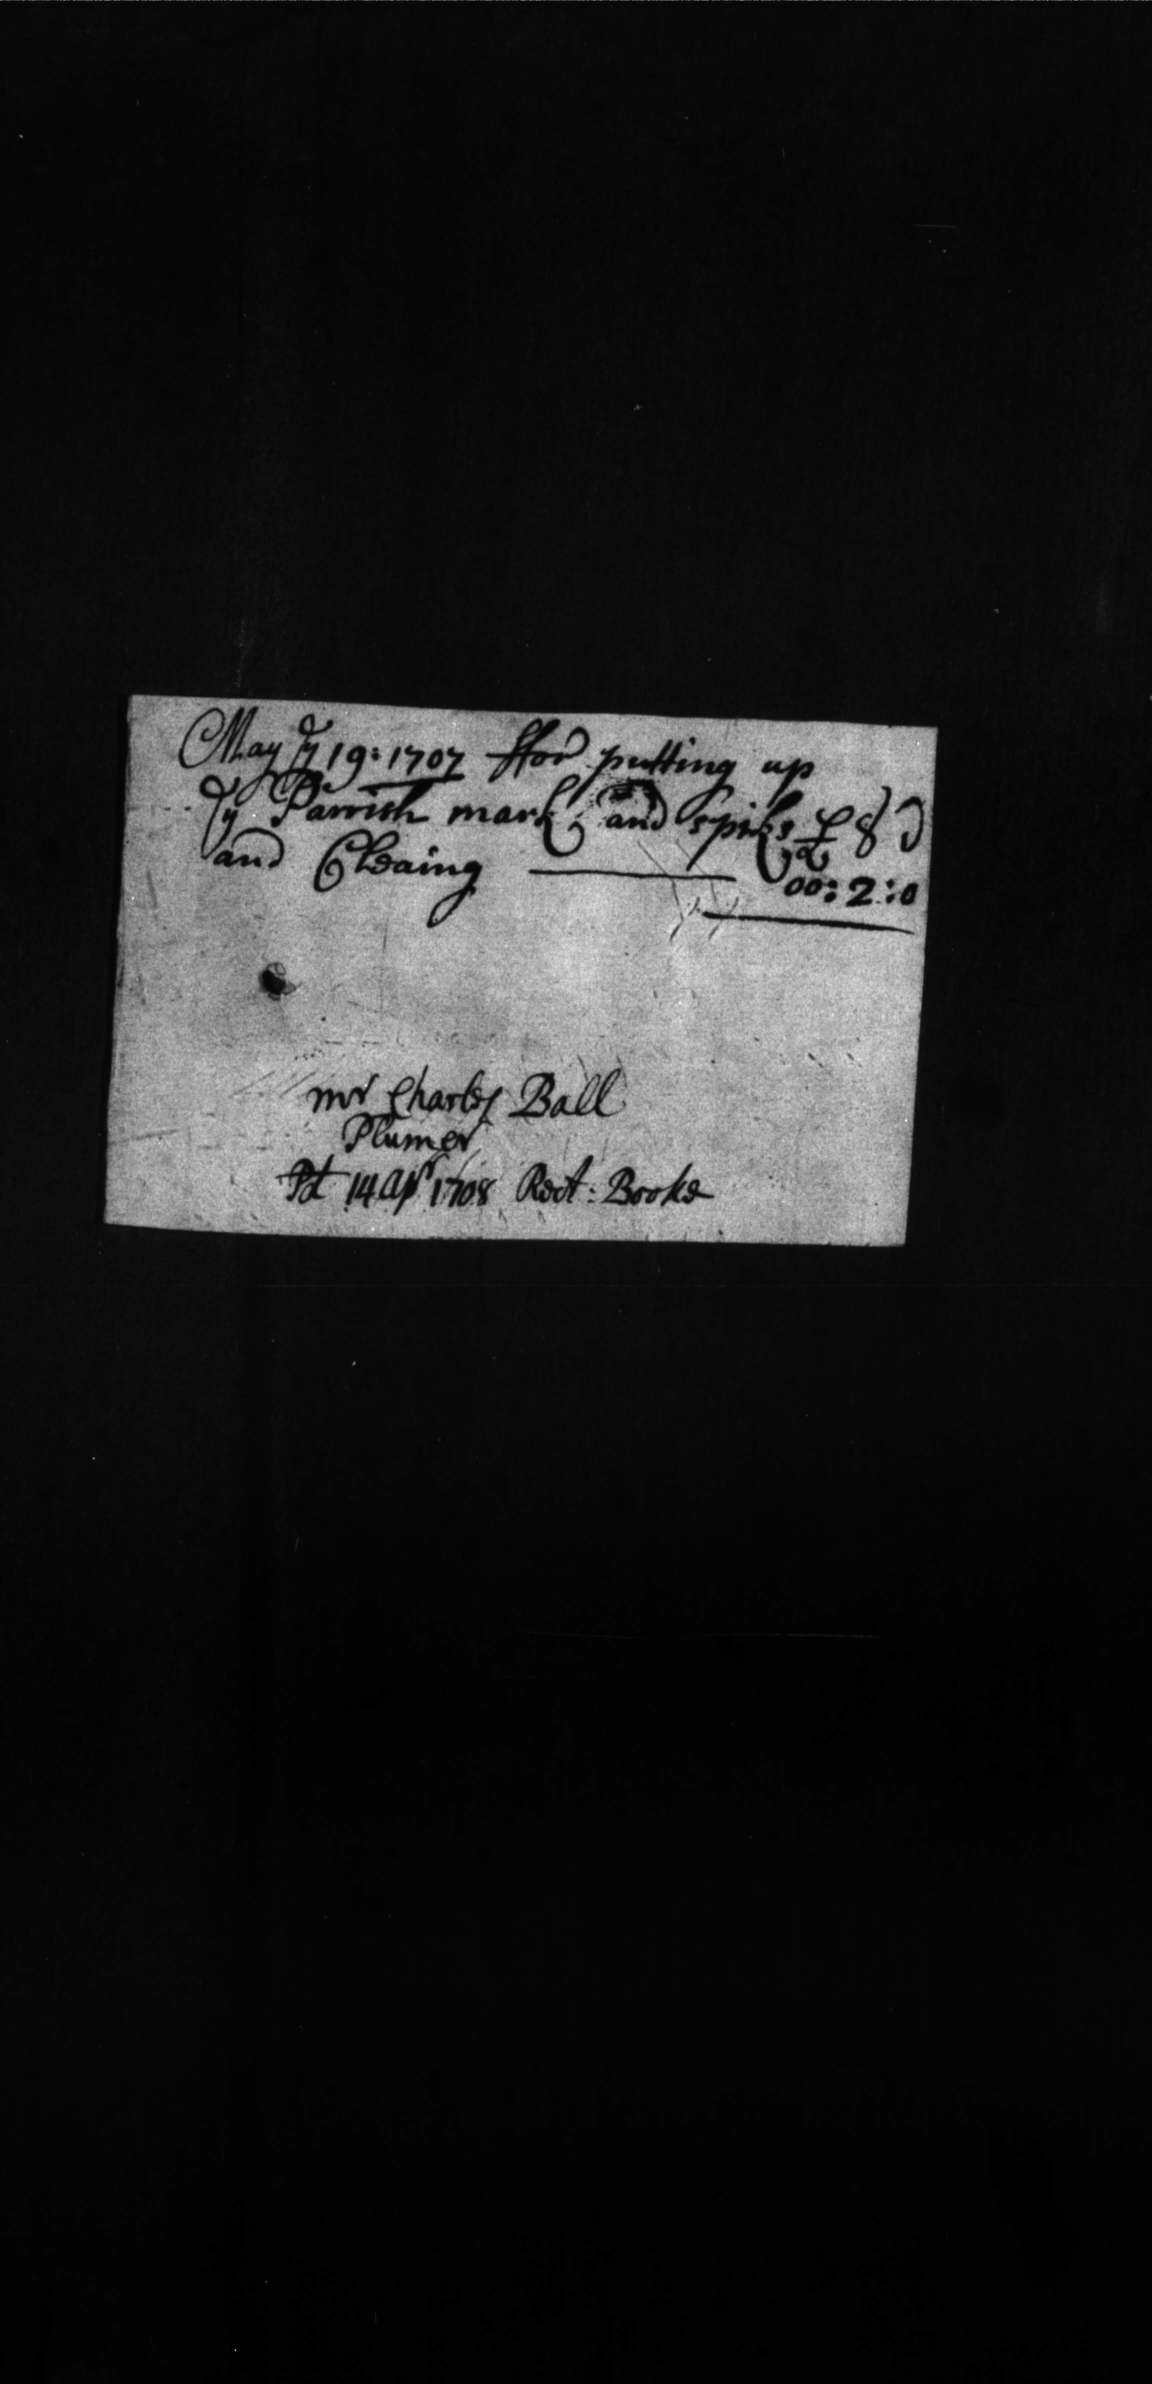 May ye 19: 1707 ffor putting up
ye Parrish mark, and spiks 8 d
and Cleaing 00: 2: 0
mr Charles Ball
Plumer
Pd 14 Apr 1708 Rect: Booke